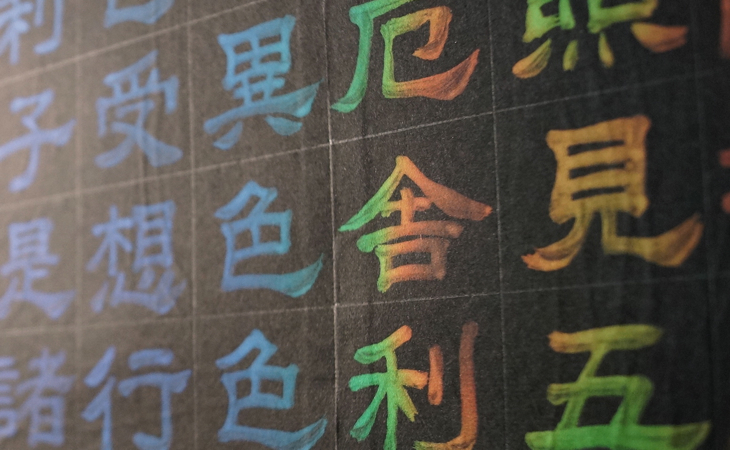 照見五
厄舍利
異色色
色受想行
利子是諸